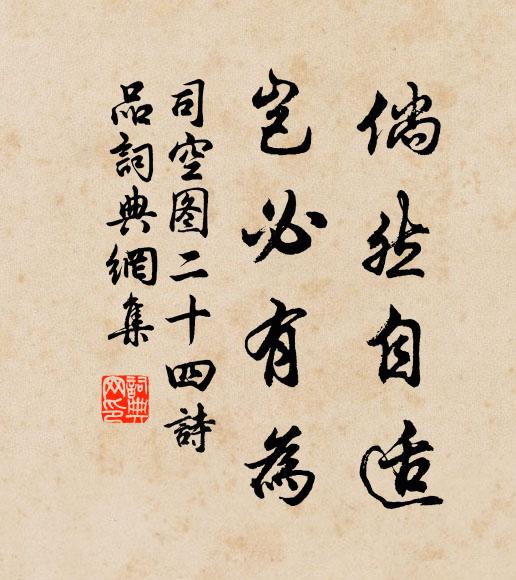 倘然自适
岂必有為
司空图二十四詩
品詞典網集
詞典
网印